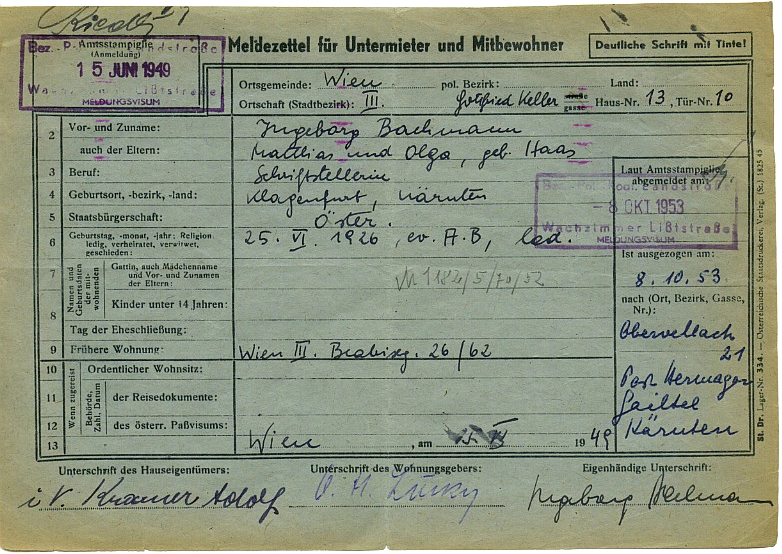 Bez.-P. Landstraße
Amtsstampiglie
(Anmeldung)
15 JUNI 1949
Wachzimmer Lißtstraße
MELDUNGSVISUM
Meldezettel für Untermieter und Mitbewohner
Deutliche Schrift mit Tinte!
Ortsgemeinde: Wien pol. Bezirk: Land:
Ortschaft (Stadtbezirk): III. Gottfried Keller straße gasse Haus-Nr. 13, Tür-Nr. 10
2 Vor- und Zuname: Ingeborg Bachmann
auch der Eltern: Matthias und Olga, geb. Haas
3 Beruf: Schriftstellerin
4 Geburtsort, -bezirk, -land: Klagenfurt, Kärnten
5 Staatsbürgerschaft: Öster.
6 Geburtstag, -monat, -jahr; Religion
ledig, verheiratet, verwitwet,
geschieden: 25. VI. 1926, ev. A.B, led.
Namen und Geburtsdaten der mit-wohnenden
7 Gattin, auch Mädchenname
und Vor- und Zunamen
der Eltern:
8 Kinder unter 14 Jahren:
Tag der Eheschließung:
9 Frühere Wohnung: Wien III. 26/62
Wenn zugereist
10 Ordentlicher Wohnsitz:
Behörde, Zahl, Datum
11 der Reisedokumente:
12 des österr. Paßvisums:
13 Wien, am 15. 1949
Laut Amtsstampiglie
abgemeldet am:
Bez.-Pol.-Koat. Landstraße
- 8 OKT 1953
Wachzimmer Lißtstraße
MELDUNGSVISUM
Ist ausgezogen am:
8. 10. 53
nach (Ort, Bezirk, Gasse,
Nr.):
Obervellach
21
Post Hermagor
Gailtal
Kärnten
St. Dr. Lager-Nr. 334. — Österreichische Staatsdruckerei, Verlag. (St.) 1825 45
Unterschrift des Hauseigentümers: Unterschrift des Wohnungsgebers: Eigenhändige Unterschrift:
i. V. Kramer Adolf Ingeborg Bachmann